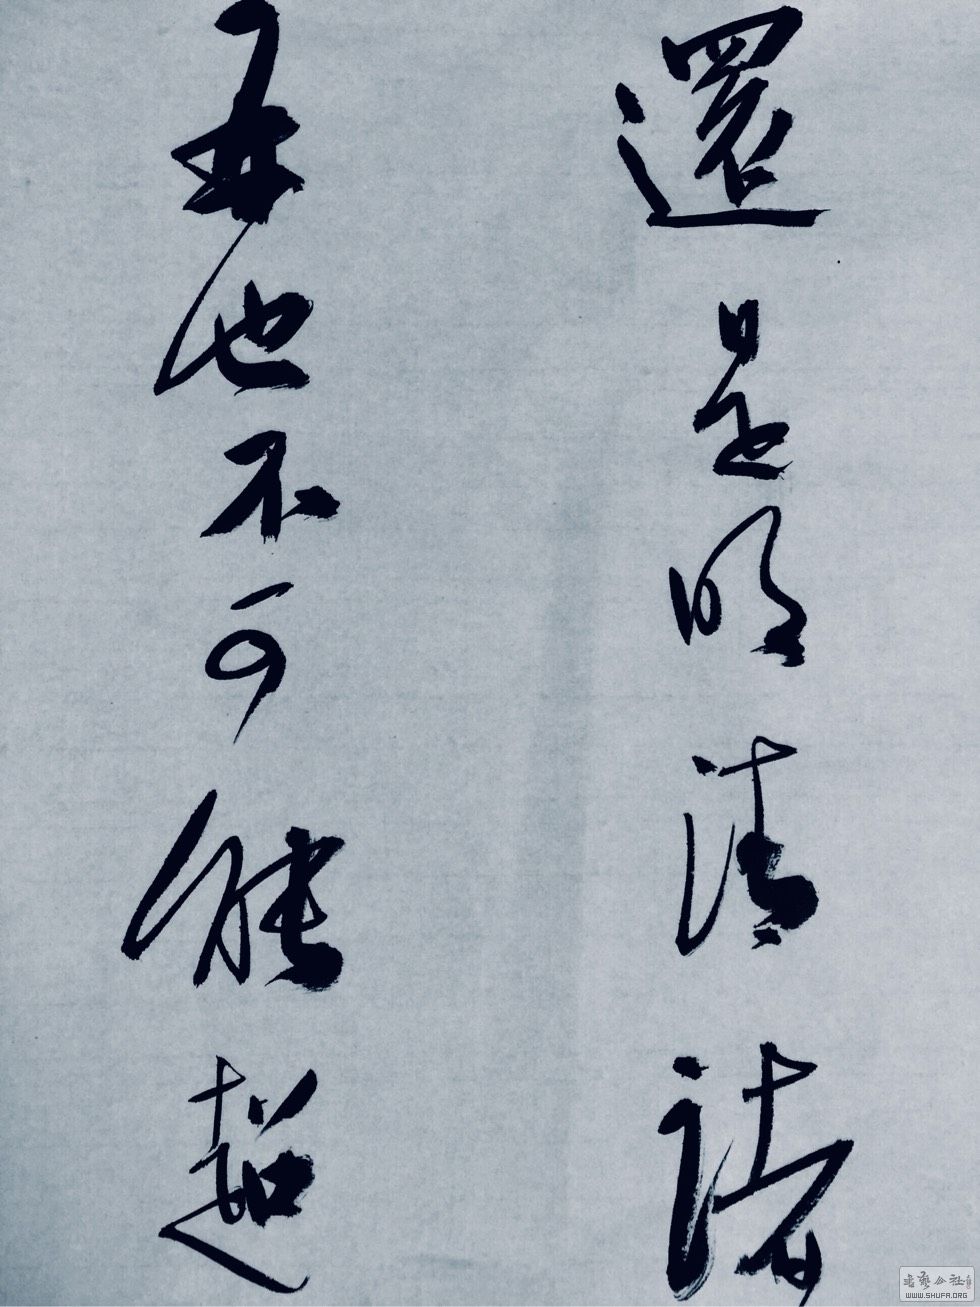 還是明清諸
再也不可能超
WWW.SHUFA.ORG